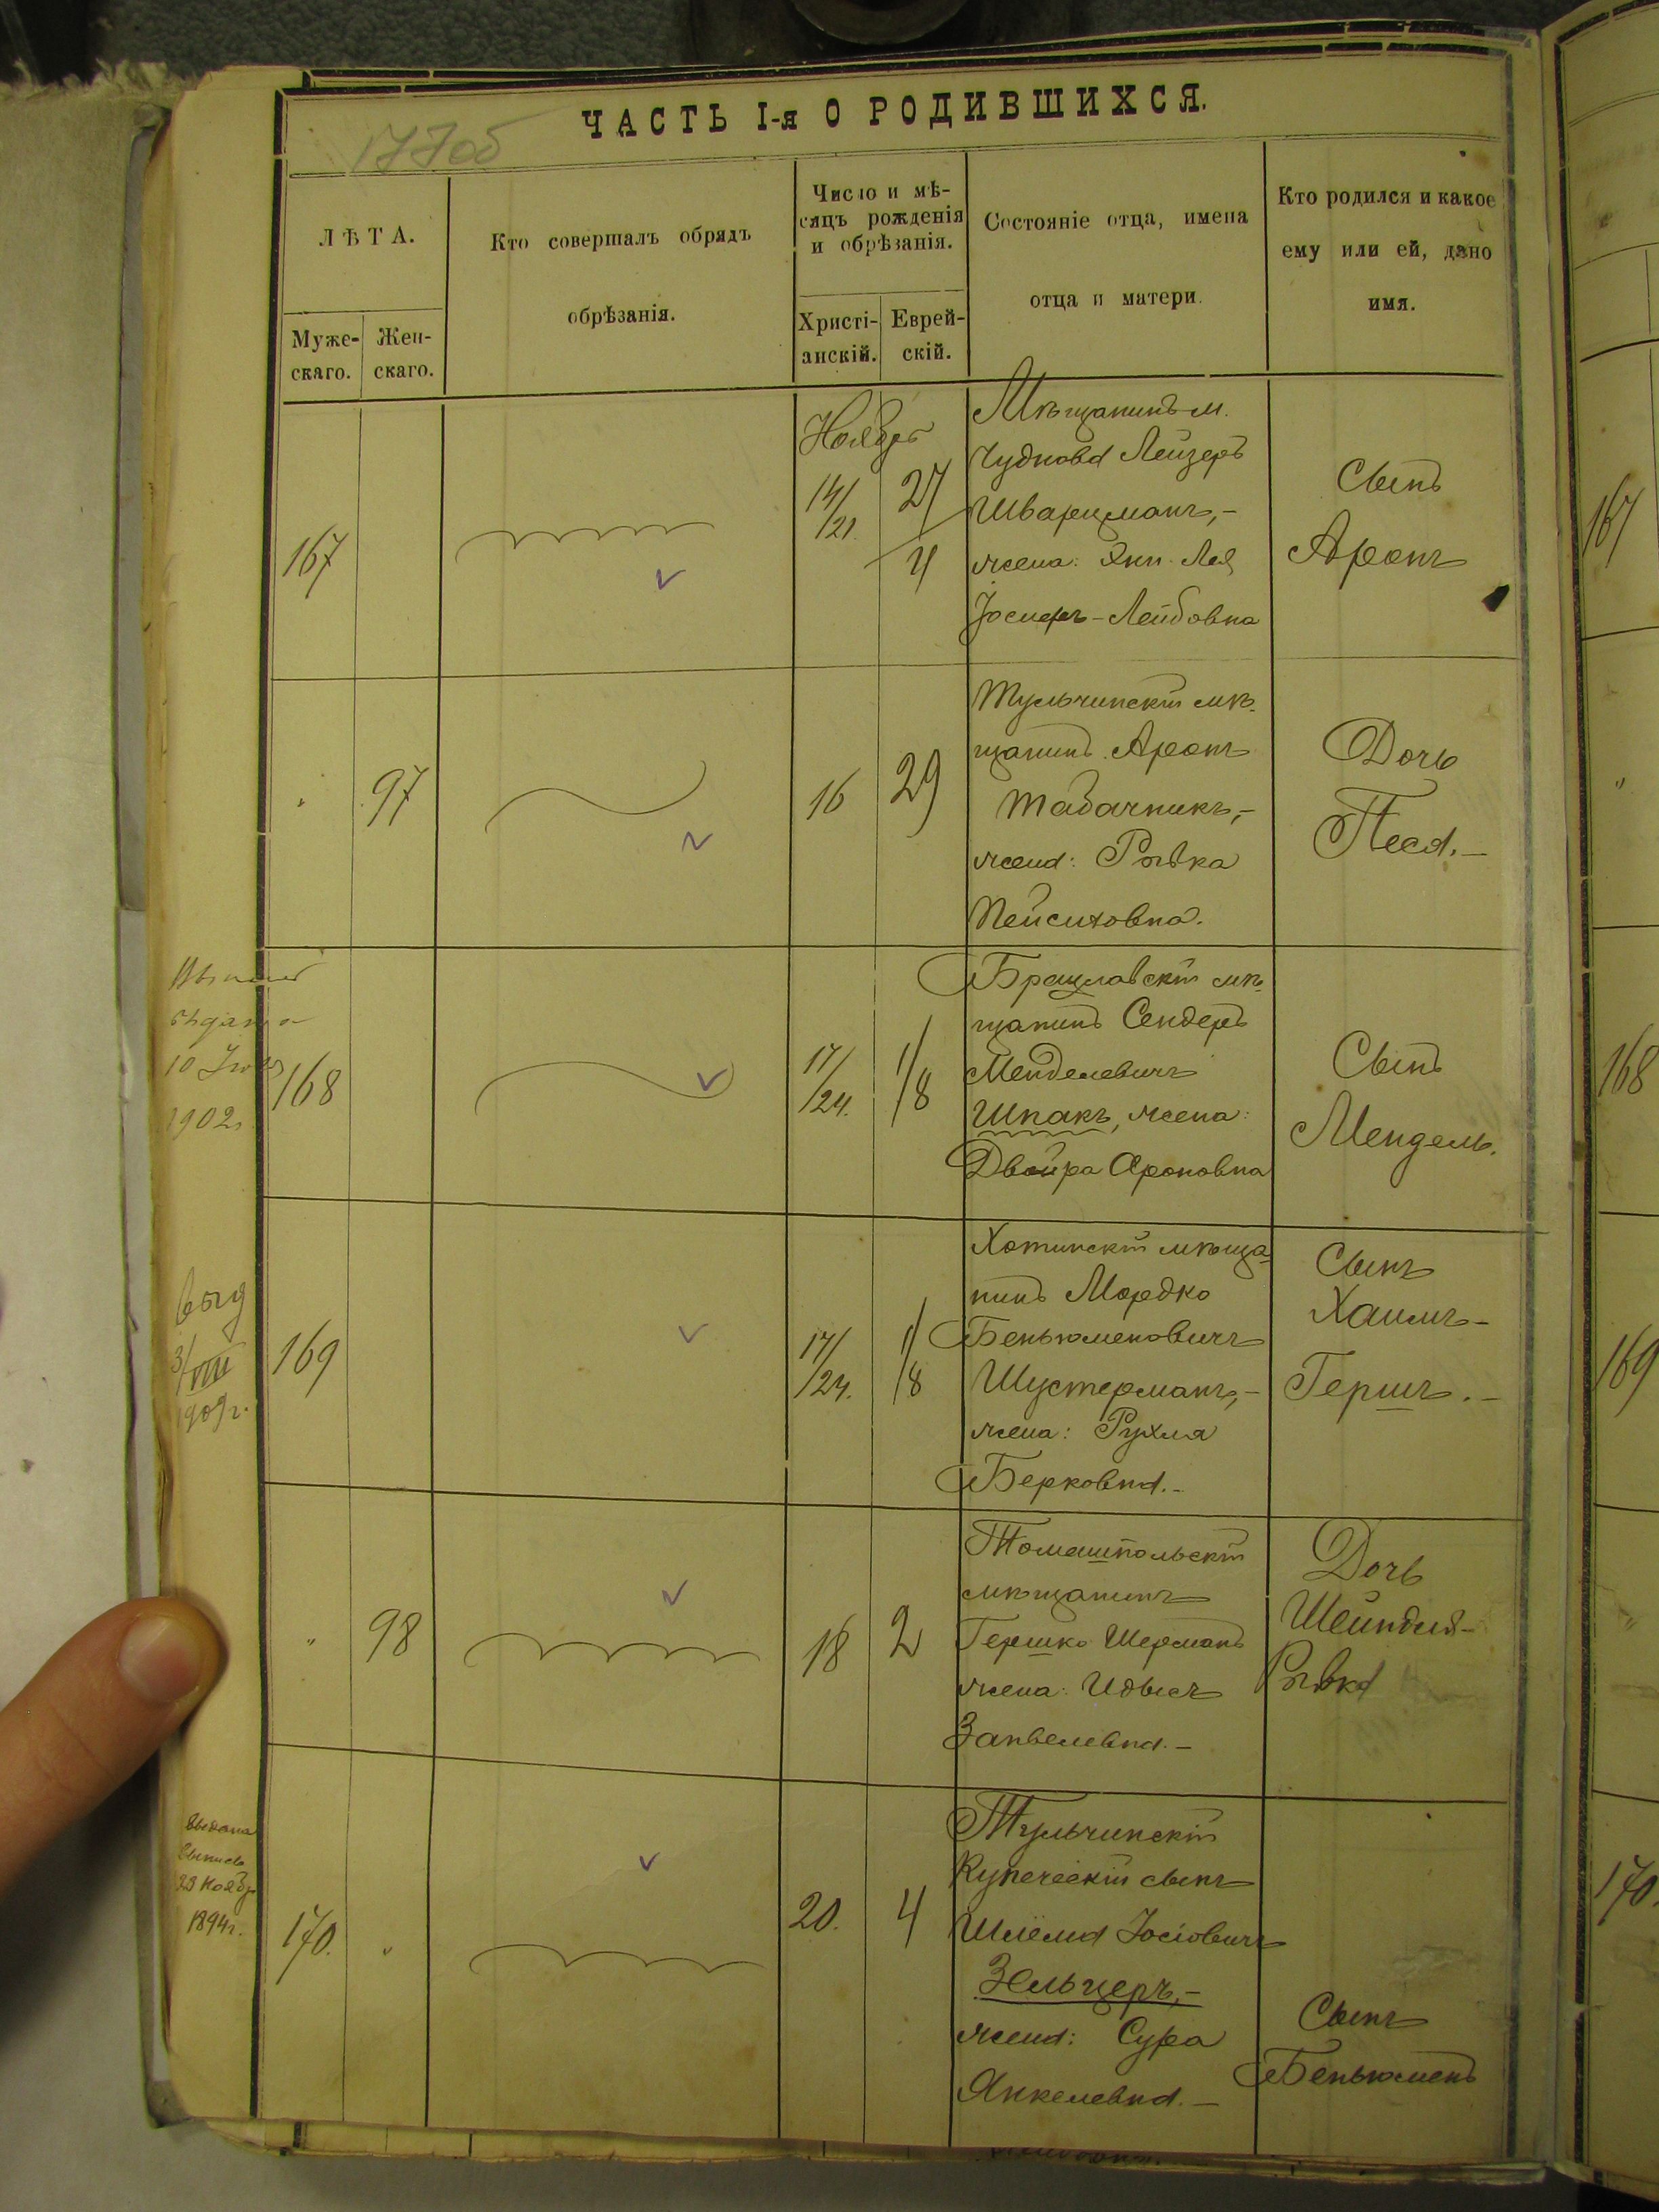 ЧАСТЬ I-я О РОДИВШИХСЯ.
177об
ЛѢТА.
Муже-
скаго.
Жен-
скаго.
Кто совершалъ обрядъ
обрѣзанія.
Число и мѣ-
сяцъ рожденія
и обрѣзанія.
Христі-
анскій.
Еврей-
скій.
Состояніе отца, имена
отца и матери.
Кто родился и какое
ему или ей, дано
имя.
167
Ноябрь
14/
/21.
27
4
Мѣщанинъ м.
Чуднова Лейзеръ
Шварцманъ,-
жена: Лея
Іосифъ-Лейбовна
Сынъ
Аронъ
167
"
97
16
29
Тульчинскій мѣ-
щанинъ Аронъ
Табачникъ,-
жена: Рывка
Пейсиховна.
Дочь
Песя.-
"
10
1902г.
168
17/
/24.
1/
/8
Брацлавскій мѣ-
щанинъ Сендеръ
Менделевичъ
Шпакъ, жена:
Двойра Ароновна
Сынъ
Мендель.
168
выд
3/VIII
1909г.
169
17/
/24.
1/
/8
Хотинскій мѣща-
нинъ Мордко
Беньюменовичъ
Шустерманъ,-
жена: Рухля
Берковна.-
Сынъ
Хаимъ-
Гершъ.-
169
"
98
18
2
Томашпольскій
мѣщанинъ
Гершко Шерманъ
жена: Идысъ
Занвелевна.-
Дочь
Шейндля-
Рывка
"
Выдана
выпись
23 Ноябр
1894г.
170.
"
20.
4
Тульчинскій
Купеческій сынъ
Шлёма Іосіовичъ
Зельцеръ,-
жена: Сура
Янкелевна.-
Сынъ
Беньюменъ
170.